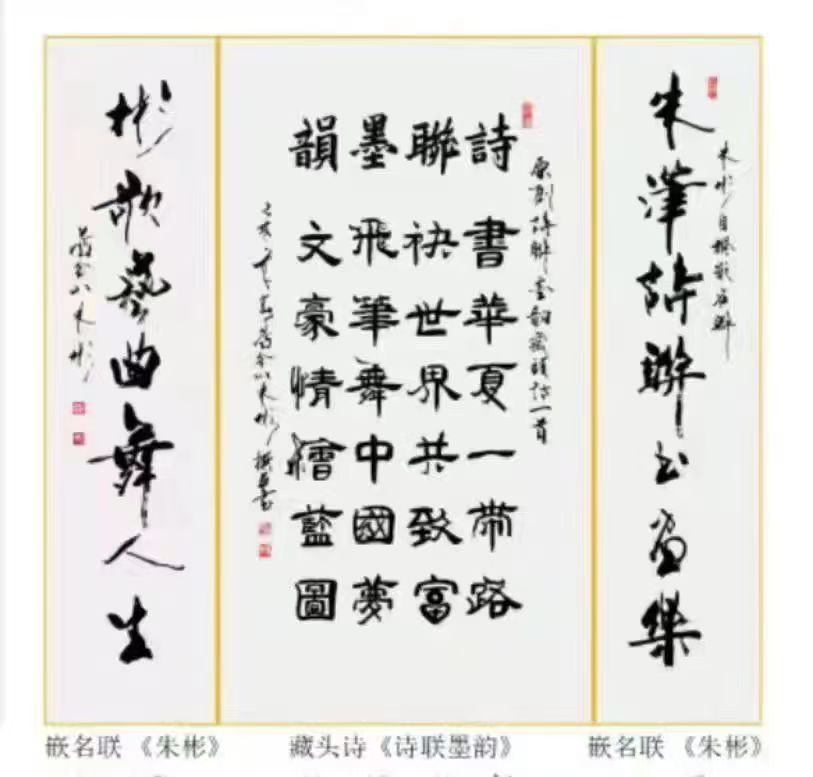 朱彬自撰嵌名联
朱詩聯书畫樂
原创詩聯墨韵藏頭詩一首
詩書華夏一帶路
聯袂世界共致富
墨飛筆舞中國夢
韻文豪情繪藍圖
己亥年舊金山朱彬撰並書
彬歌藝曲舞人生
舊金山朱彬
嵌名联《朱彬》
藏头诗《诗联墨韵》
嵌名联《朱彬》